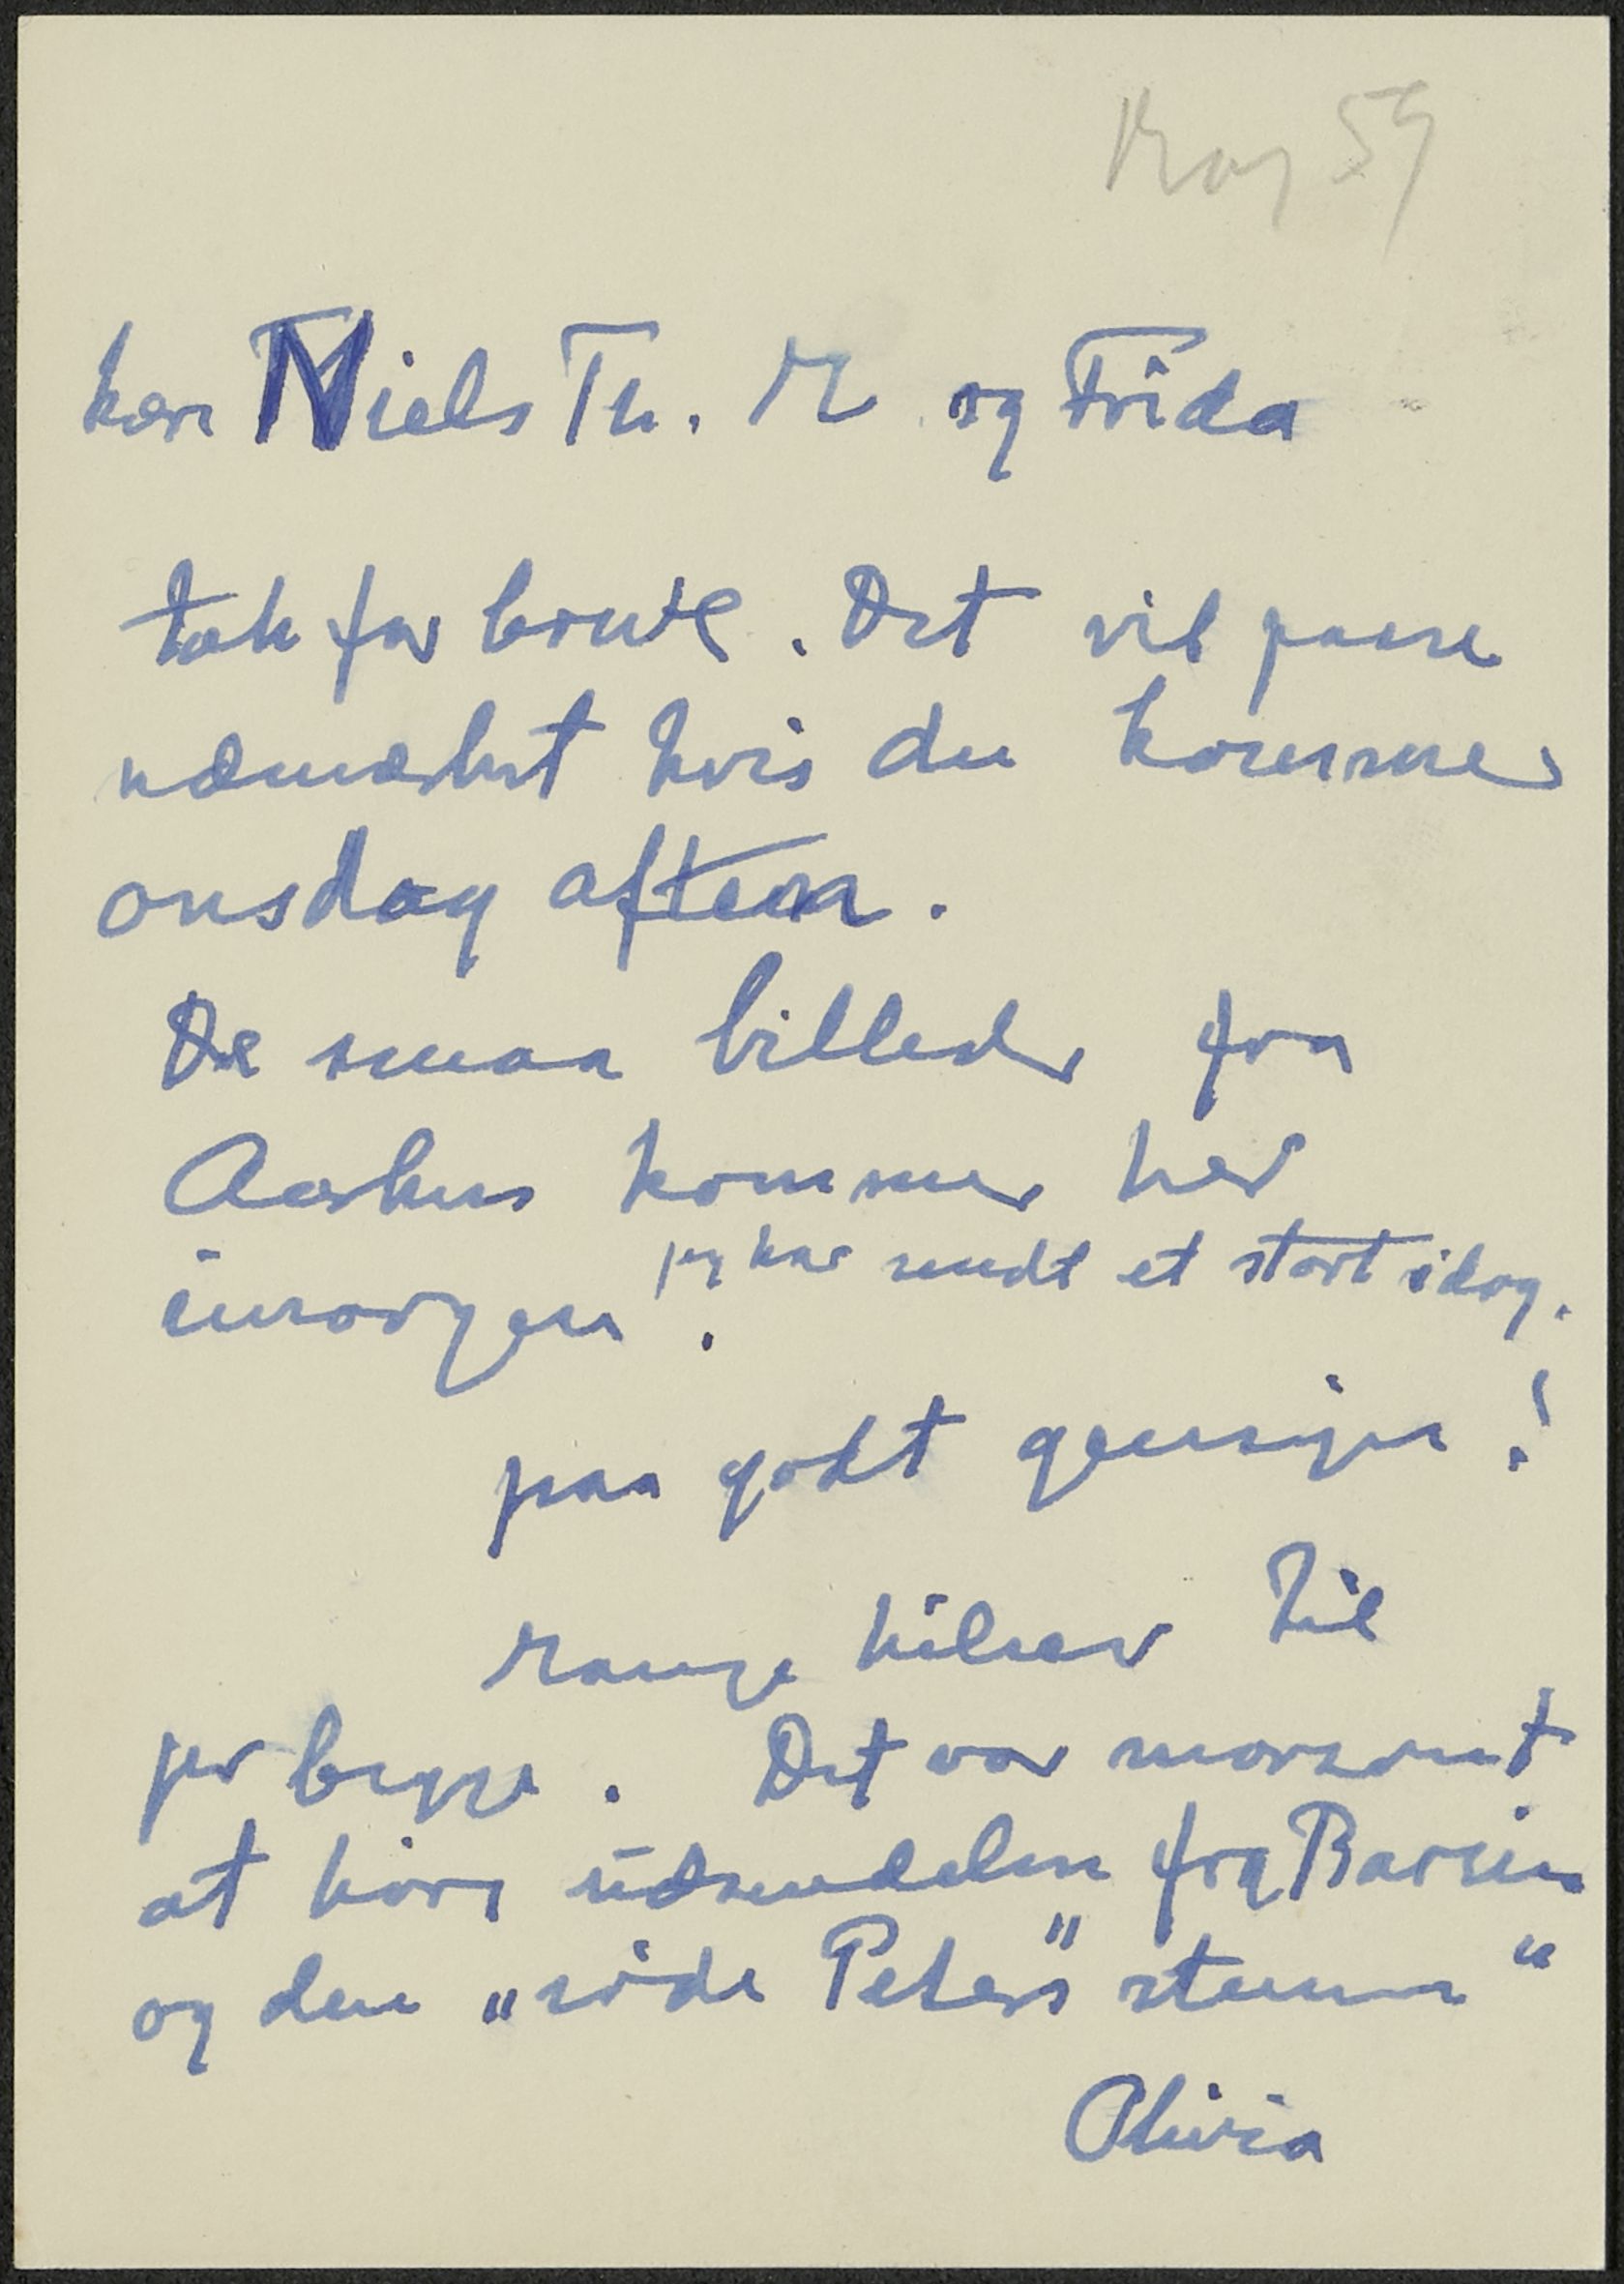 Maj 59
kære Niels Th. M og Frida
tak for brevet. Det vil passe
udmærket hvis du kommer
onsdag aften.
De smaa billeder fra
Aarhus kommer her
jeg har sendt et stort idag.
imorgen.
paa godt gensyn!
Mange hilsner til
jer begge. Det var morsomt
at høre udsendelsen fra
og den „søde Peters" stemme"
Olivia